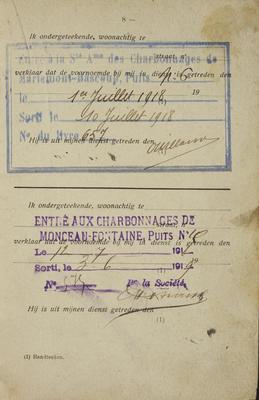 8 —
Ik ondergeteekende, woonachtig te
straat,
Entré à la Sté Ame des Charbonnages de
verklaar dat de voornoemde bij mij in dienst is getreden den
Mariemont-Bascoup, Puits No 6
1er Juillet 1918, 19
Sorti le 10 Juillet 1918
No du livre 657
Hij is uit mijnen dienst getreden den
Ik ondergeteekende, woonachtig te
ENTRÉ AUX CHARBONNAGES DE
verklaar dat de voornoemde bij mij in dienst is getreden
MONCEAU-FONTAINE, PUITS No
Le 12 7 191
Sorti, le 3 6 1919
No Pr la Société,
Hij is uit mijnen dienst getreden den
(1)
(1) Handteeken.